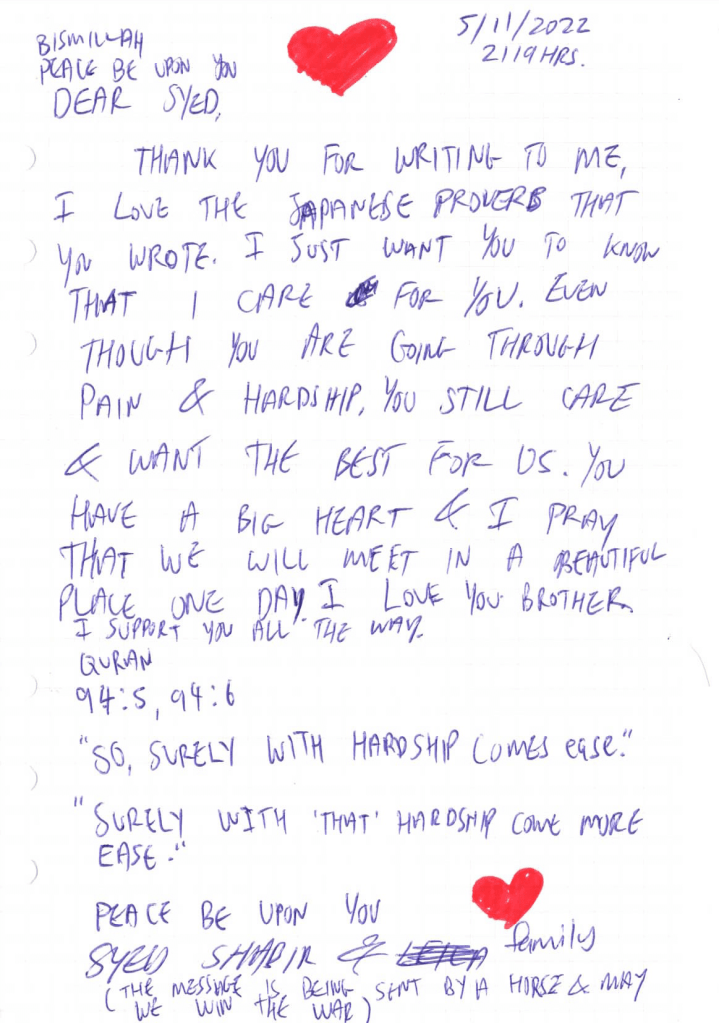 5/11/2022
2119HRS.
BISMILLAH
PEACE BE UPON YOU
DEAR SYED,
THANK YOU FOR WRITING TO ME,
I LOVE THE JAPANESE PROVERB THAT
YOU WROTE. I JUST WANT YOU TO KNOW
THAT I CARE FOR YOU. EVEN
THOUGH YOU ARE GOING THROUGH
PAIN & HARDSHIP, YOU STILL CARE
& WANT THE BEST FOR US. YOU
HAVE A BIG HEART & I PRAY
THAT WE WILL MEET IN A BEAUTIFUL
PLACE ONE DAY. I LOVE YOU BROTHER.
I SUPPORT YOU ALL THE WAY.
QURAN
94:5, 94:6
"SO, SURELY WITH HARDSHIP COMES ease."
"SURELY WITH 'THAT' HARDSHIP COME MORE
EASE."
PEACE BE UPON YOU
SYED SHABIR & family
(THE MESSAGE IS BEING SENT BY A HORSE & MAY
WE WIN THE WAR)